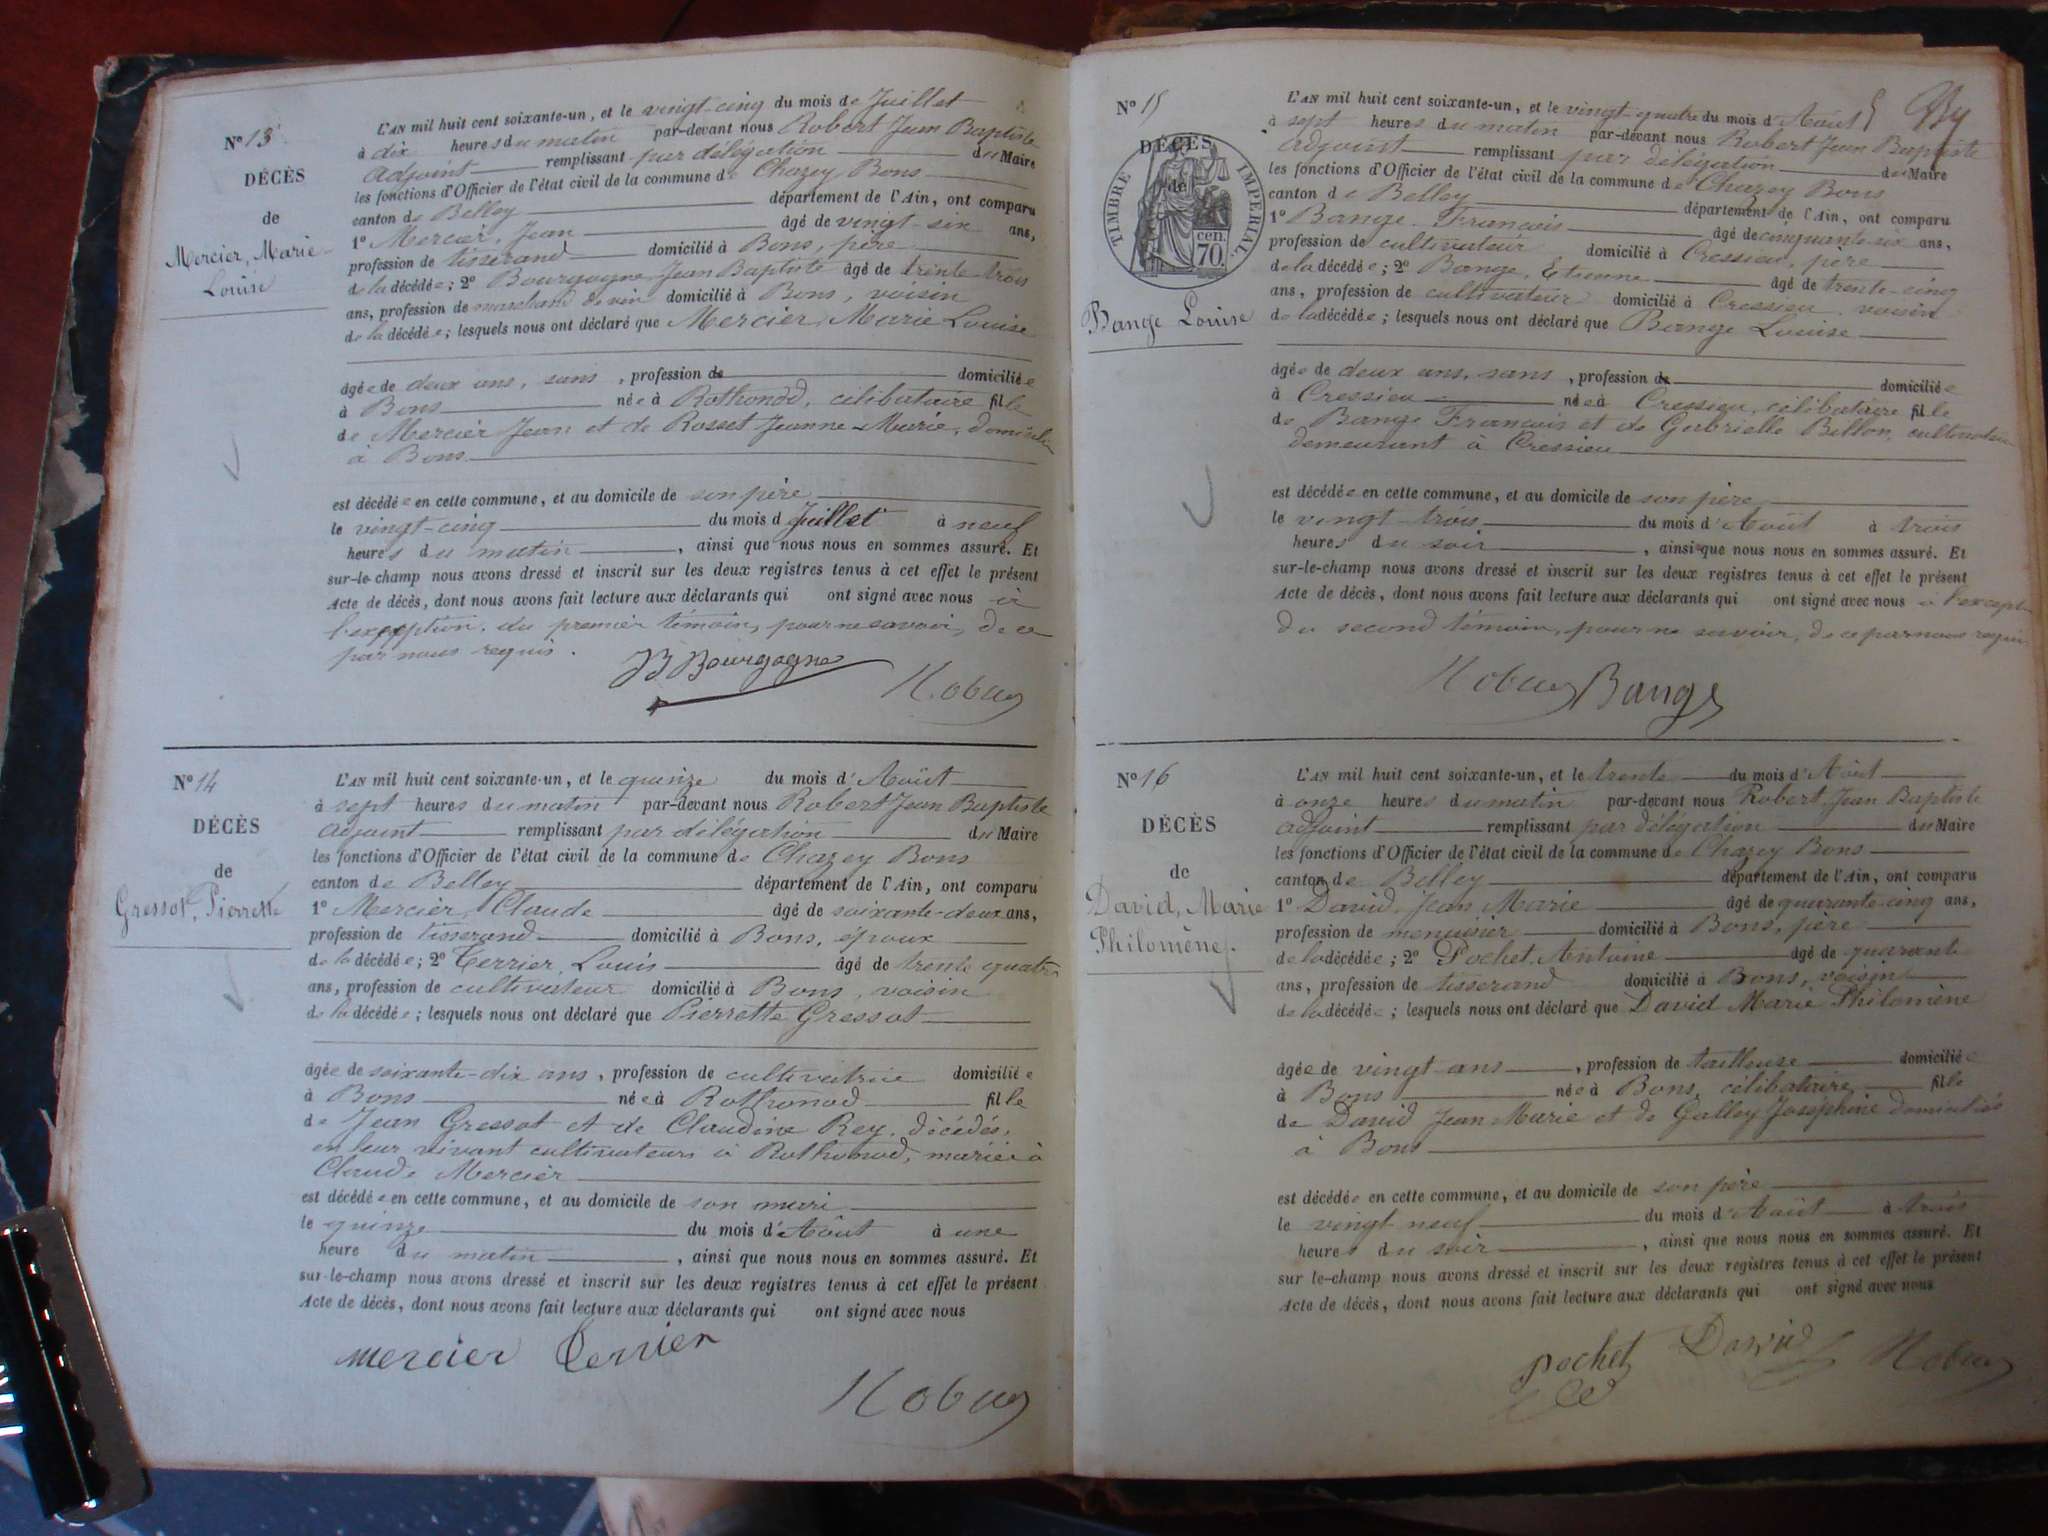 N° 13
DÉCÈS
de
Mercier, Marie
Louise
L'AN mil huit cent soixante-un, et le vingt-cinq du mois de Juillet
à dix heures du matin par-devant nous Robert Jean Baptiste
adjoint remplissant par délégation du Maire
les fonctions d'Officier de l'état civil de la commune de Chazey Bons
canton de Belley département de l'Ain, ont comparu
1° Mercier, Jean âgé de vingt-six ans,
profession de tisserand domicilié à Bons, père
de la décédée; 2° Bourgogne Jean Baptiste âgé de trente-trois
ans, profession de marchand de vin domicilié à Bons, voisin
de la décédée; lesquels nous ont déclaré que Mercier, Marie Louise
âgée de deux ans, sans, profession de domiciliée
à Bons née à Rothonod, célibataire fille
de Mercier Jean et de Rosset Jeanne-Marie, domiciliés
à Bons
est décédée en cette commune, et au domicile de son père
le vingt-cinq du mois d Juillet à neuf
heures du matin, ainsi que nous nous en sommes assuré. Et
sur-le-champ nous avons dressé et inscrit sur les deux registres tenus à cet effet le présent
Acte de décès, dont nous avons fait lecture aux déclarants qui ont signé avec nous à
l'exception du premier témoin, pour ne savoir, de ce
par nous requis.
JB Bourgogne
N° 14
DÉCÈS
de
Gressot, Pierrette
L'AN mil huit cent soixante-un, et le quinze du mois d'Août
à sept heures du matin par-devant nous Robert Jean Baptiste
adjoint remplissant par délégation du Maire
les fonctions d'Officier de l'état civil de la commune de Chazey Bons
canton de Belley département de l'Ain, ont comparu
1° Mercier, Claude âgé de soixante-deux ans,
profession de tisserand domicilié à Bons, époux
de la décédée; 2° Terrier, Louis âgé de trente quatre
ans, profession de cultivateur domicilié à Bons, voisin
de la décédée; lesquels nous ont déclaré que Pierrette Gressot
âgée de soixante-dix ans, profession de cultivatrice domiciliée
à Bons née à Rothonod fille
de Jean Gressot et de Claudine Rey, décédés,
en leur vivant cultivateurs à Rothonod, mariée à
Claude Mercier
est décédée en cette commune, et au domicile de son mari
le quinze du mois d'Août à une
heure du matin, ainsi que nous nous en sommes assuré. Et
sur-le-champ nous avons dressé et inscrit sur les deux registres tenus à cet effet le présent
Acte de décès, dont nous avons fait lecture aux déclarants qui ont signé avec nous
Mercier Terrier
N° 15
DÉCÈS
de
TIMBRE IMPÉRIAL
70 cen.
Bange Louise
L'AN mil huit cent soixante-un, et le vingt-quatre du mois d'Août
à sept heures du matin par-devant nous Robert Jean Baptiste
adjoint remplissant par délégation du Maire
les fonctions d'Officier de l'état civil de la commune de Chazey Bons
canton de Belley département de l'Ain, ont comparu
1° Bange, François âgé de cinquante-six ans,
profession de cultivateur domicilié à Cressieu, père
de la décédée; 2° Bange, Etienne âgé de trente-cinq
ans, profession de cultivateur domicilié à Cressieu, voisin
de la décédée; lesquels nous ont déclaré que Bange Louise
âgée de deux ans, sans, profession de domiciliée
à Cressieu née à Cressieu, célibataire fille
de Bange François et de Gabrielle Billon, cultivateurs
demeurant à Cressieu
est décédée en cette commune, et au domicile de son père
le vingt-trois du mois d'Août à trois
heures du soir, ainsi que nous nous en sommes assuré. Et
sur-le-champ nous avons dressé et inscrit sur les deux registres tenus à cet effet le présent
Acte de décès, dont nous avons fait lecture aux déclarants qui ont signé avec nous à l'except
du second témoin, pour ne savoir, de ce par nous requis
Bange
N° 16
DÉCÈS
de
David, Marie
Philomène
L'AN mil huit cent soixante-un, et le trente du mois d'Août
à onze heures du matin par-devant nous Robert Jean Baptiste
adjoint remplissant par délégation du Maire
les fonctions d'Officier de l'état civil de la commune de Chazey Bons
canton de Belley département de l'Ain, ont comparu
1° David, Jean Marie âgé de quarante-cinq ans,
profession de menuisier domicilié à Bons, père
de la décédée; 2° Pochet Antoine âgé de quarante
ans, profession de tisserand domicilié à Bons, voisin
de la décédée; lesquels nous ont déclaré que David Marie Philomène
âgée de vingt ans, profession de tailleuse domiciliée
à Bons née à Bons, célibataire fille
de David Jean Marie et de Galley Joséphine domiciliés
à Bons
est décédée en cette commune, et au domicile de son père
le vingt neuf du mois d'Août à trois
heures du soir, ainsi que nous nous en sommes assuré. Et
sur le-champ nous avons dressé et inscrit sur les deux registres tenus à cet effet le présent
Acte de décès, dont nous avons fait lecture aux déclarants qui ont signé avec nous
Pochet David